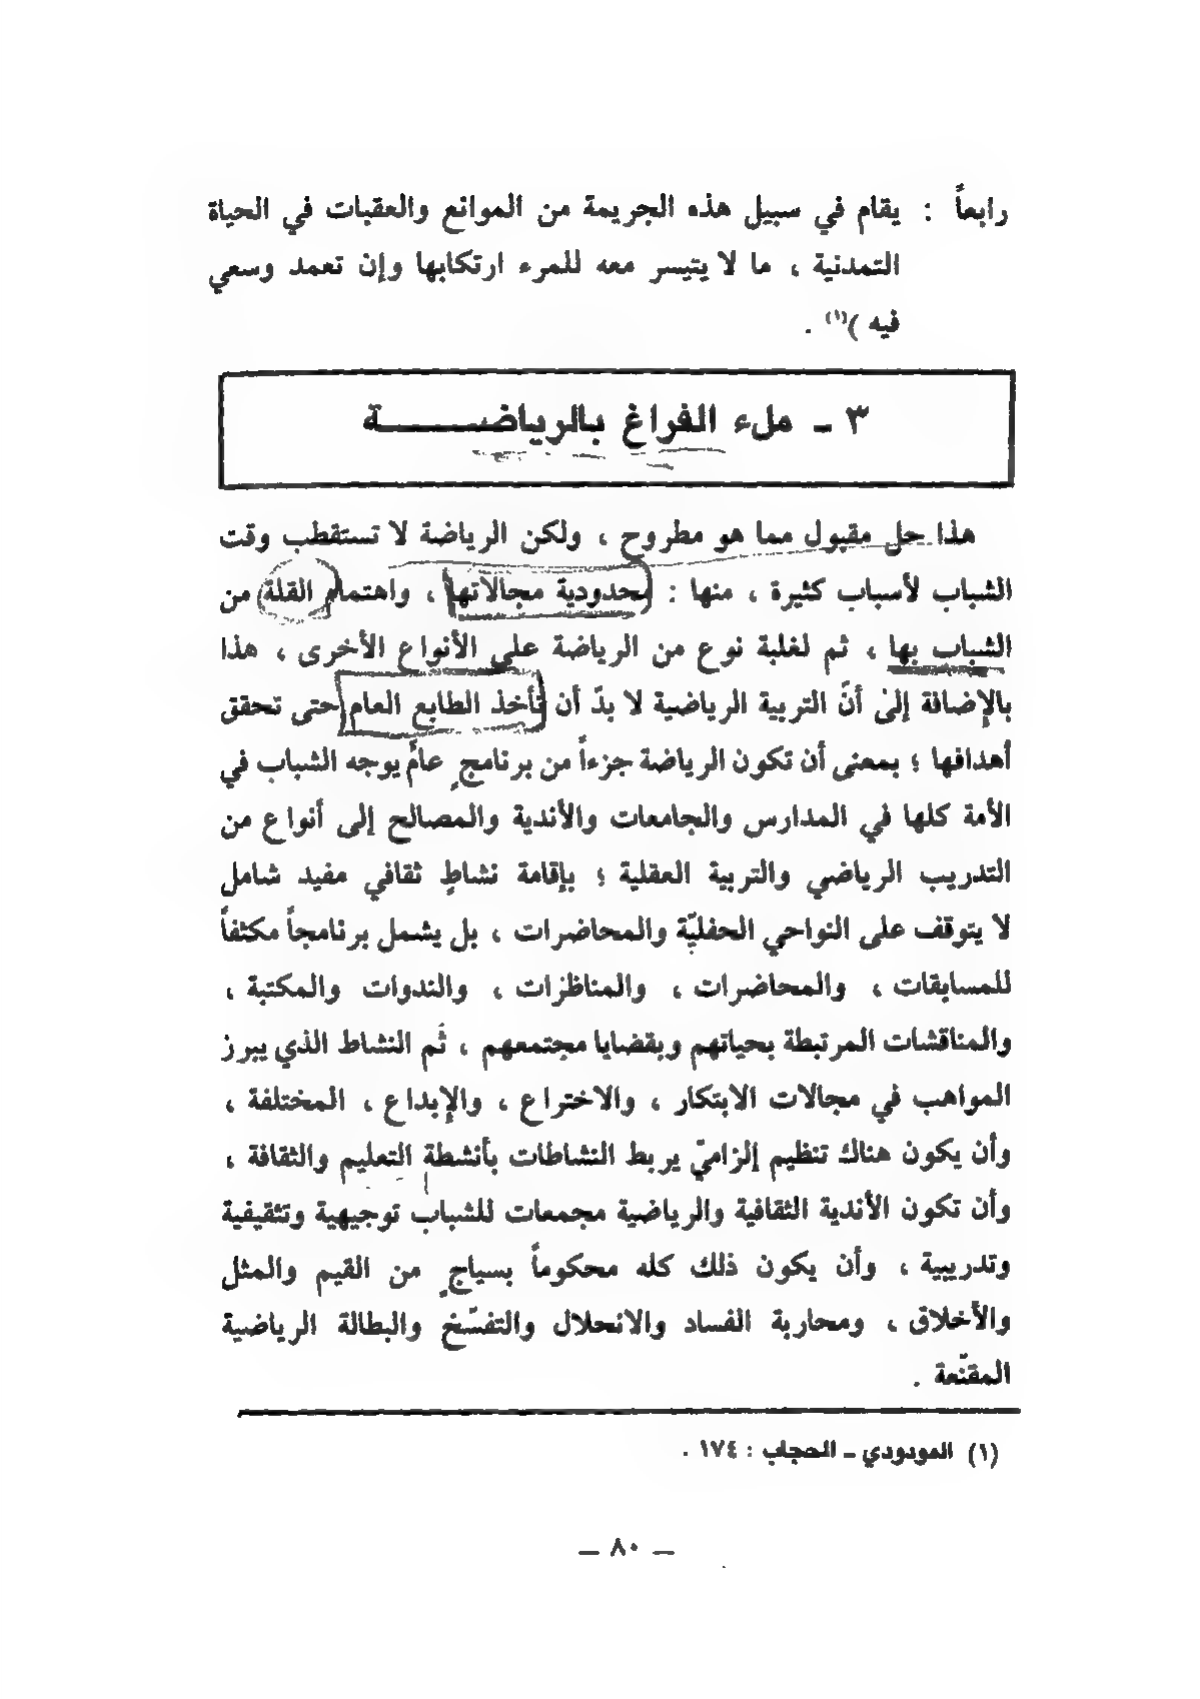 رابعاً : يقام في سبيل هذه الجريمة من الموانع والعقبات في الحياة
التمدنية ، ما لا يتيسر معه للمرء ارتكابها وإن تعمد وسعي
فيه )(١) .
٣ ـ ملء الفراغ بالرياضـــــــــة
هذا حل مقبول مما هو مطروح ، ولكن الرياضة لا تستقطب وقت
الشباب لأسباب كثيرة ، منها : محدودية مجالاتها ، واهتمام القلة من
الشباب بها ، ثم لغلبة نوع من الرياضة على الأنواع الأخرى ، هذا
بالإضافة إلىٰ أنّ التربية الرياضية لا بدّ أن تأخذ الطابع العام حتى تحقق
أهدافها ؛ بمعنى أن تكون الرياضة جزءاً من برنامجٍ عامٍّ يوجه الشباب في
الأمة كلها في المدارس والجامعات والأندية والمصالح إلى أنواع من
التدريب الرياضي والتربية العقلية ؛ بإقامة نشاطٍ ثقافي مفيد شامل
لا يتوقف على النواحي الحفليّة والمحاضرات ، بل يشمل برنامجاً مكثفاً
للمسابقات ، والمحاضرات ، والمناظرات ، والندوات والمكتبة ،
والمناقشات المرتبطة بحياتهم وبقضايا مجتمعهم ، ثَم النشاط الذي يبرز
المواهب في مجالات الابتكار ، والاختراع ، والإبداع ، المختلفة ،
وأن يكون هناك تنظيم إلزاميّ يربط النشاطات بأنشطة التعليم والثقافة ،
وأن تكون الأندية الثقافية والرياضية مجمعات للشباب توجيهية وتثقيفية
وتدريبية ، وأن يكون ذلك كله محكوماً بسياجٍ من القيم والمثل
والأخلاق ، ومحاربة الفساد والانحلال والتفسّخ والبطالة الرياضية
المقنّعة .
(١) المودودي ـ الحجاب : ١٧٤ .
— ٨٠ —